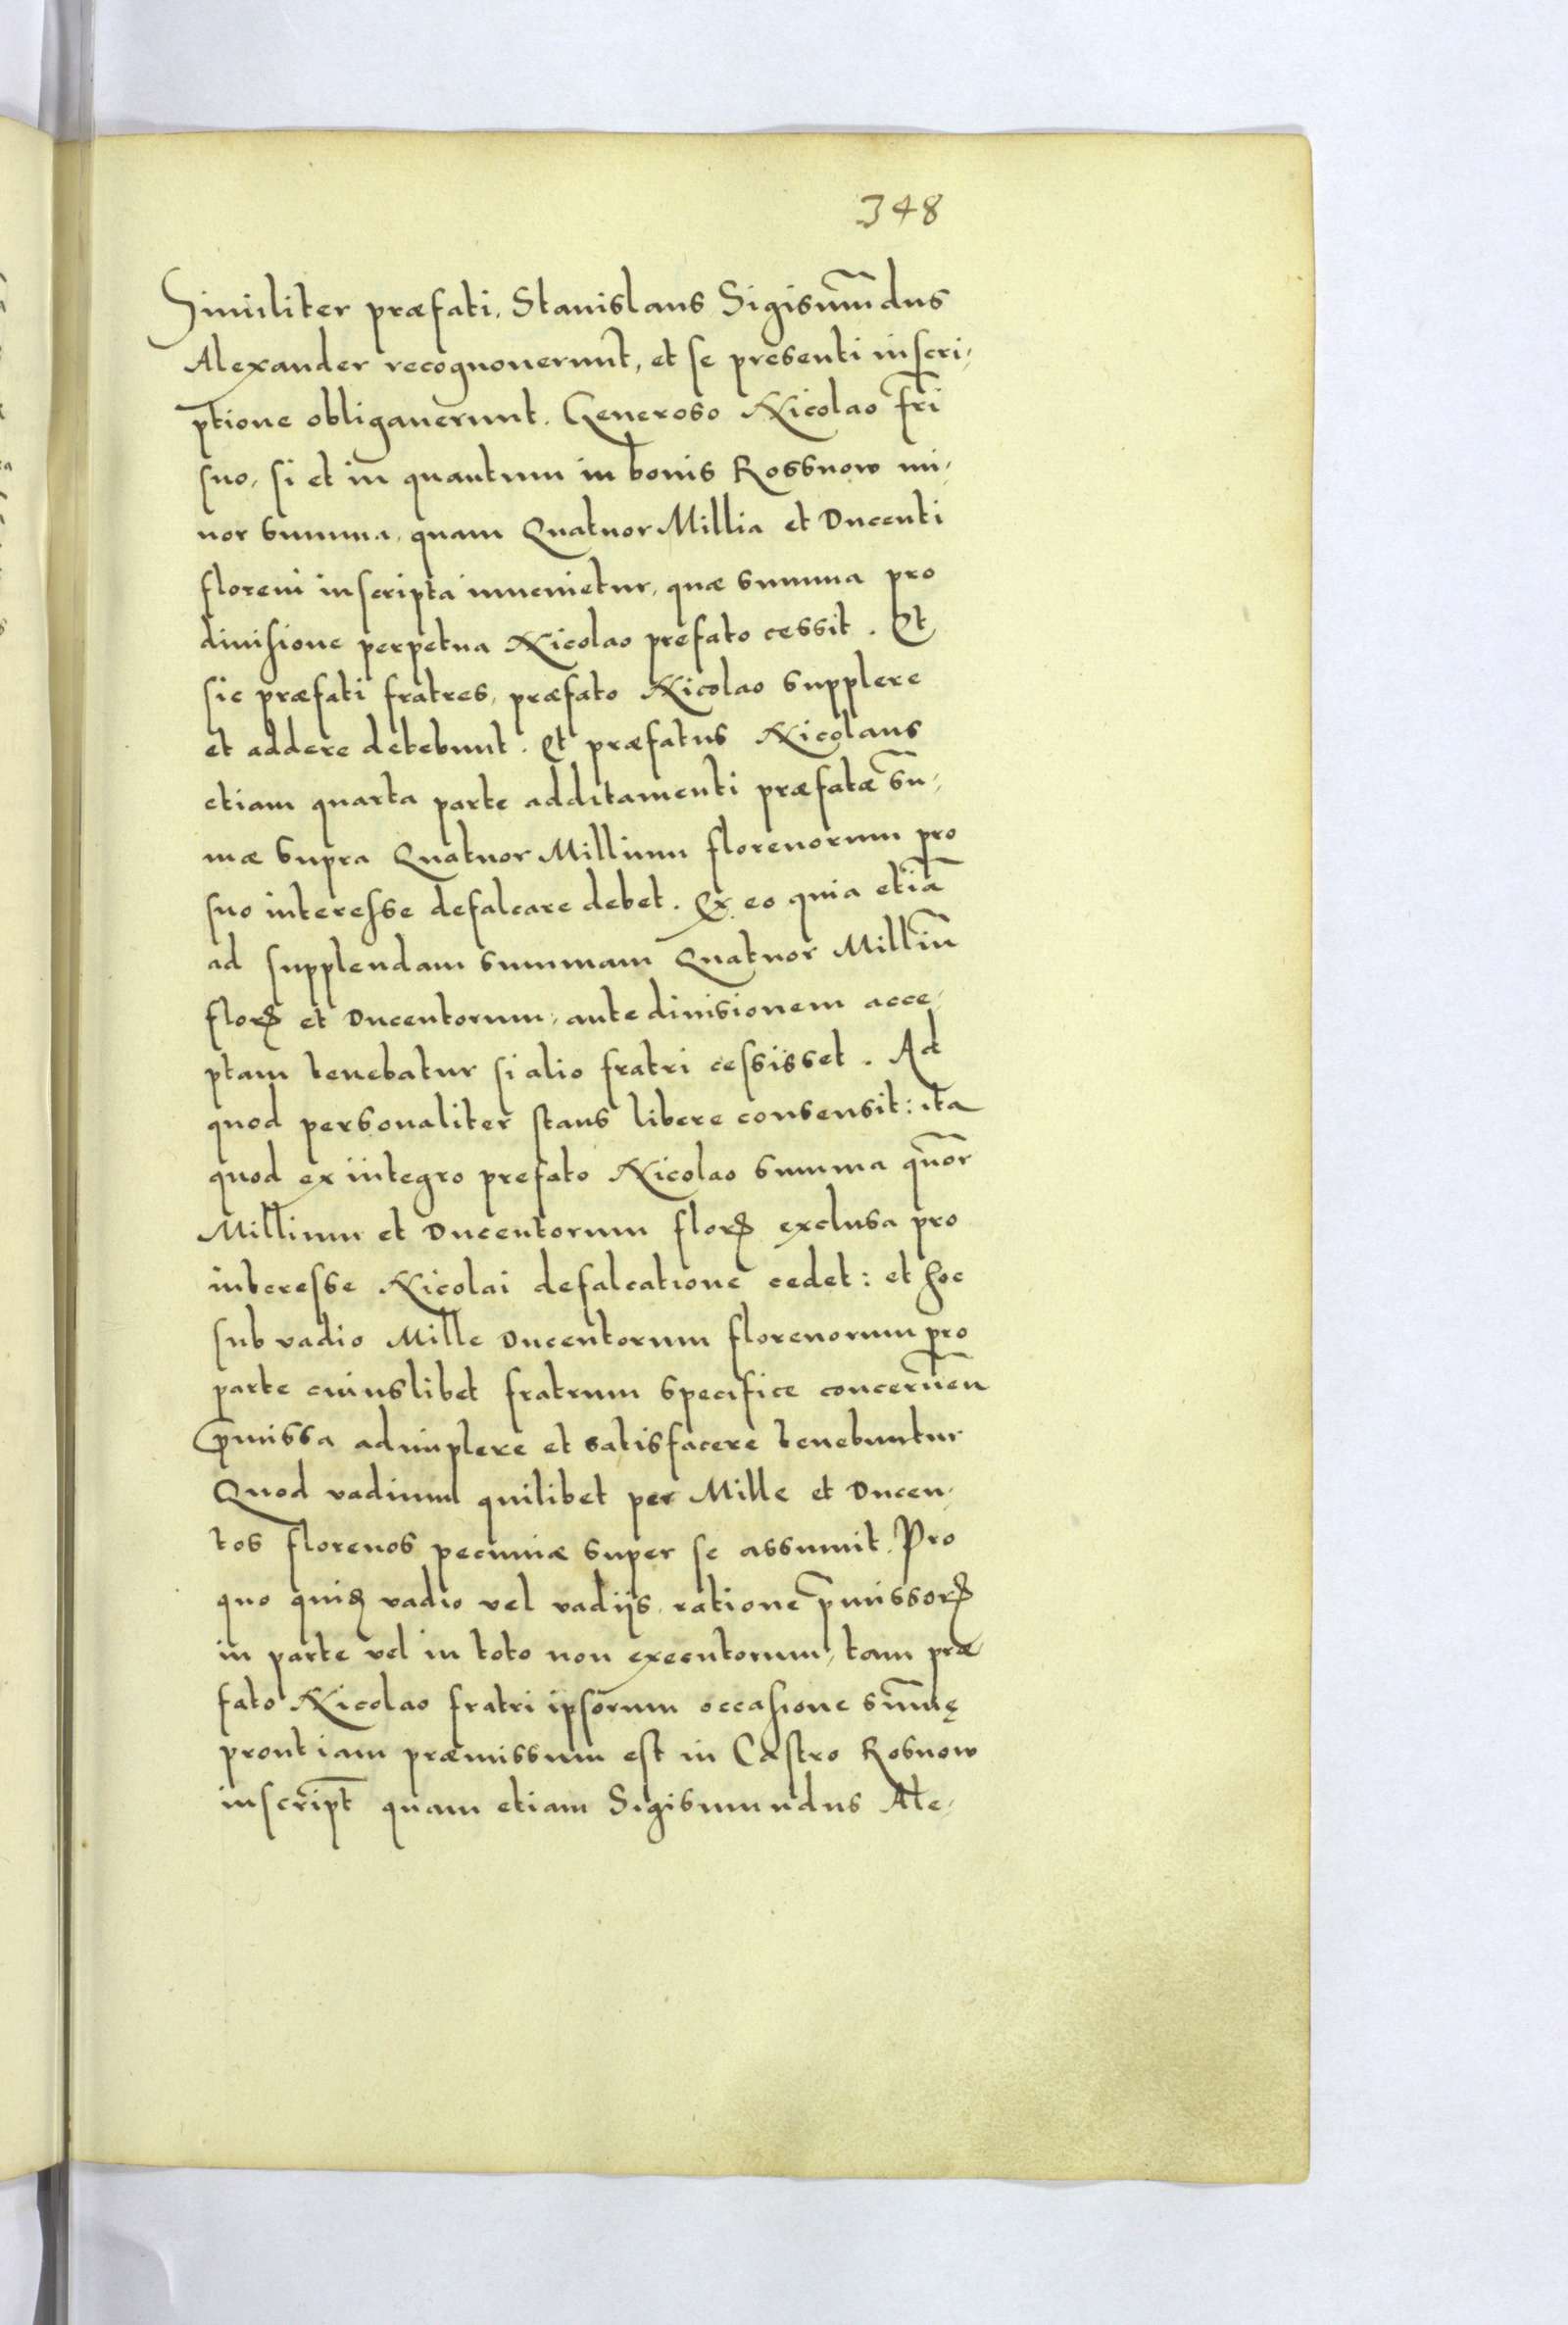 348
Similiter præfati, Stanislaus Sigismu̅ndus
Alexander recognouerunt, et se presenti inscri,
ptione obligauerunt. Generoso Nicolao fr̅i
suo, si et in quantum in bonis Rossnow mi,
nor summa, quam Quatuor Millia et Ducenti
floreni inscripta inuenietur, quæ summa pro
diuisione perpetua Nicolao prefato cessit. Et
sic præfati fratres, præfato Nicolao supplere
et addere debebunt. Et præfatus Nicolaus
etiam quarta parte additamenti præfatæ su̅,
mæ supra Quatuor Millium florenorum pro
suo interesse defalcare debet. Ex eo quia etia̅
ad supplendam summam Quatuor Milliu̅
florꝝ et Ducentorum, ante diuisionem acce,
ptam tenebatur si alio fratri cessisset. Ad
quod personaliter stans libere consensit: ita
quod ex integro prefato Nicolao summa quo̅r
Millium et Ducentorum florꝝ exclusa pro
interesse Nicolai defalcatione cedet: et hoc
sub vadio Mille Ducentorum florenorum pro
parte cuiuslibet fratrum specifice concerne̅n
p̅missa adimplere et satisfacere tenebuntur
Quod vadium quilibet per Mille et Ducen,
tos florenos pecuniæ super se assumit. Pro
quo quidꝫ vadio vel vadijs, ratione p̅missorꝝ
in parte vel in toto non executorum, tam præ
fato Nicolao fratri ipsorum occasione su̅mę
prout iam præmissum est in Castro Rosnow
inscript̅ quam etiam Sigismundus Ale,